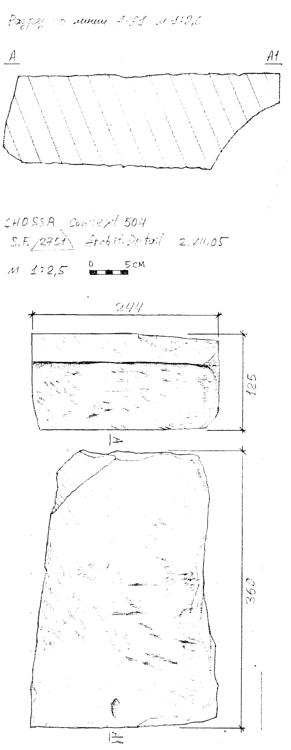 Разрез по линии А-А1 м 1:2,5
А А1
CHOSSA Context 504
S.F. 2751 Archit. Detail 2.VII.05
м 1:2,5 0 5 см
244
125
А
360
А1